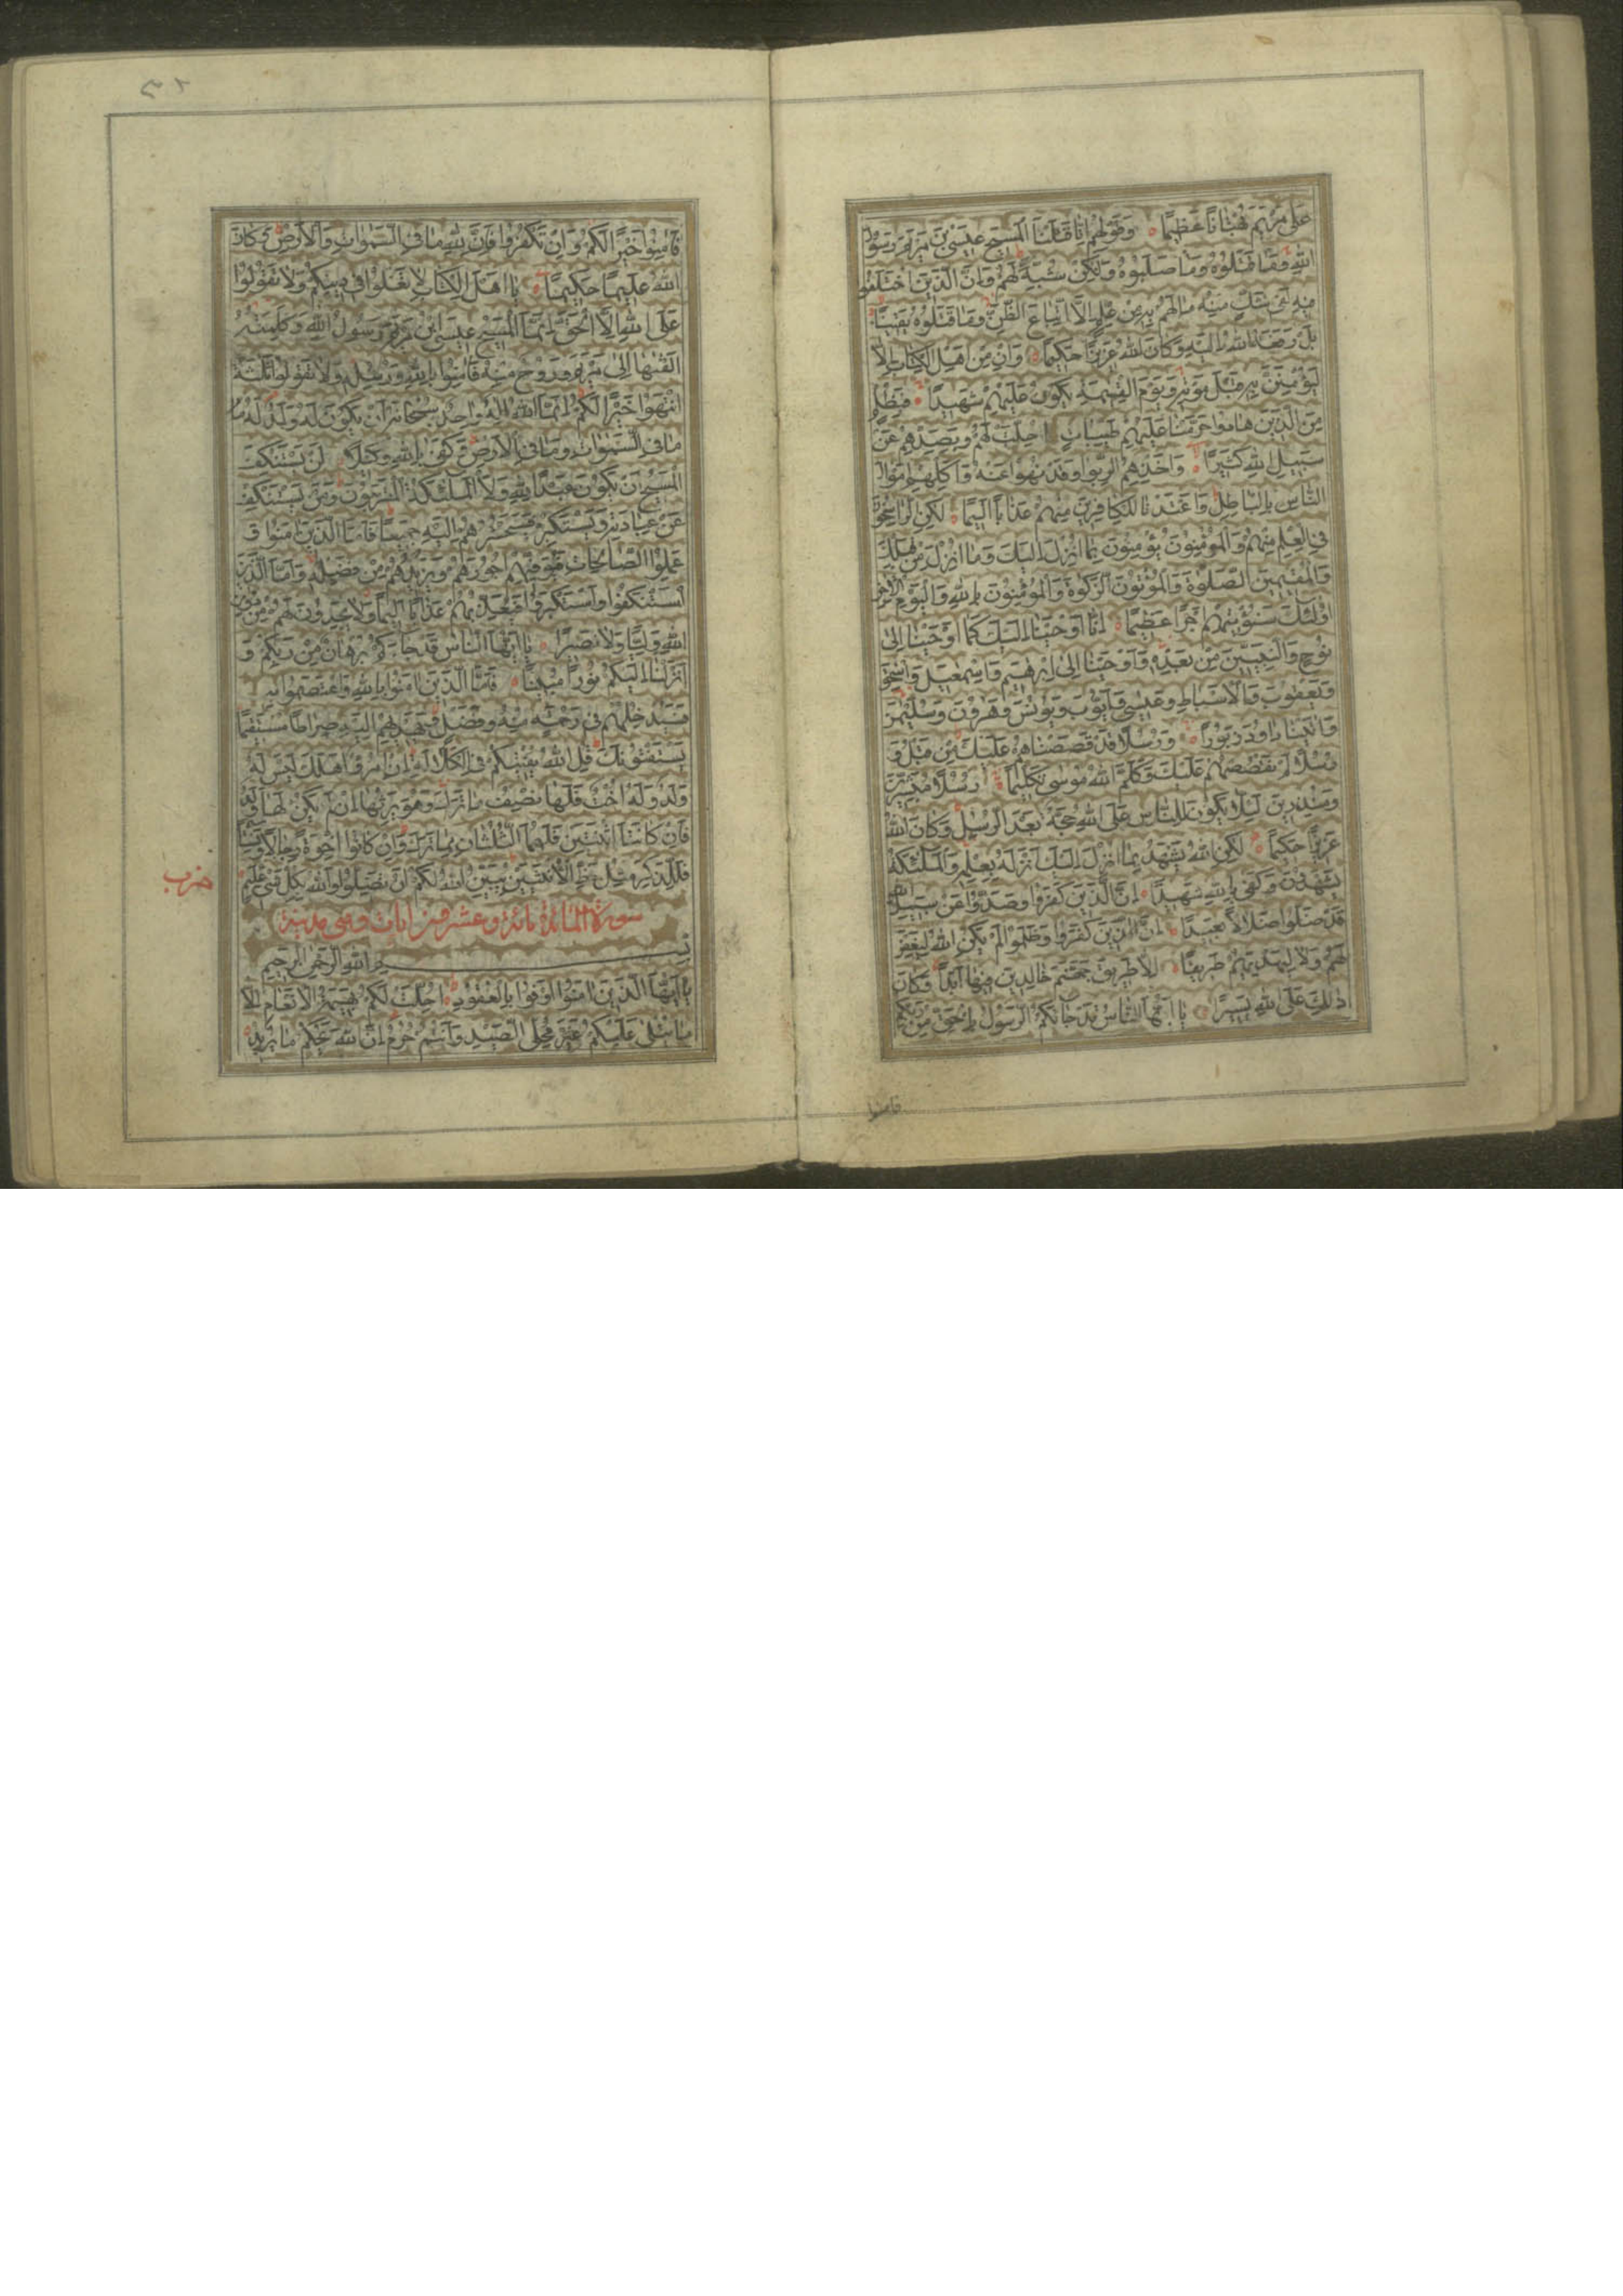 على مريم بهتانا عظيما وقولهم انا قتلنا المسيح عيسى بن مريم رسول
الله وما قتلوه وما صلبوه ولكن شبه لهم وان الذين اختلفوا
فيه لفى شك منه مالهم به من علم الا اتباع الظن وما قتلوه يقينا
بل رفعه الله اليه وكان الله عزيزا حكيما وان من اهل الكتاب الا
ليؤمنن به قبل موته ويوم القيمة يكون عليهم شهيدا فبظلم
من الذين هادوا حرمنا عليهم طيبات احلت لهم وبصدهم عن
سبيل الله كثيرا واخذهم الربوا وقد نهوا عنه واكلهم اموال
الناس بالباطل واعتدنا للكافرين منهم عذابا اليما لكن الراسخون
في العلم منهم والمؤمنون يؤمنون بما انزل اليك وما انزل من قبلك
والمقيمين الصلوة والمؤتون الزكوة والمؤمنون بالله واليوم الاخر
اولئك سنؤتيهم اجرا عظيما انا اوحينا اليك كما اوحينا الى
نوح والنبيين من بعده واوحينا الى ابرهيم واسمعيل واسحق
ويعقوب والاسباط وعيسى وايوب ويونس وهرون وسليمن
واتينا داود زبورا ورسلا قد قصصناهم عليك من قبل و
رسلا لم نقصصهم عليك وكلم الله موسى تكليما رسلا مبشرين
ومنذرين ليلا يكون للناس على الله حجة بعد الرسل وكان الله
عزيزا حكيما لكن الله يشهد بما انزل اليك انزله بعلمه والملئكة
يشهدون وكفى بالله شهيدا ان الذين كفروا وصدوا عن سبيل الله
قد ضلوا ضلالا بعيدا ان الذين كفروا وظلموا لم يكن الله ليغفر
لهم ولا ليهديهم طريقا الا طريق جهنم خالدين فيها ابدا وكان
ذلك على الله يسيرا يا ايها الناس قد جاءكم الرسول بالحق من ربكم
فامنوا
فامنوا خيرا لكم وان تكفروا فان لله ما في السموات والارض وكان
الله عليما حكيما يا اهل الكتاب لا تغلوا في دينكم ولا تقولوا
على الله الا الحق انما المسيح عيسى ابن مريم رسول الله وكلمته
القيها الى مريم وروح منه فامنوا بالله ورسله ولا تقولوا ثلثة
انتهوا خيرا لكم انما الله اله واحد سبحانه ان يكون له ولد له
ما في السموات وما في الارض وكفى بالله وكيلا لن يستنكف
المسيح ان يكون عبدا لله ولا الملئكة المقربون ومن يستنكف
عن عبادته ويستكبر فسيحشرهم اليه جميعا فاما الذين امنوا و
عملوا الصالحات فيوفيهم اجورهم ويزيدهم من فضله واما الذين
استنكفوا واستكبروا فيعذبهم عذابا اليما ولا يجدون لهم من دون
الله وليا ولا نصيرا يا ايها الناس قد جاءكم برهان من ربكم و
انزلنا اليكم نورا مبينا فاما الذين امنوا بالله واعتصموا به
فسيدخلهم في رحمة منه وفضل ويهديهم اليه صراطا مستقيما
يستفتونك قل الله يفتيكم في الكلالة ان امرؤا هلك ليس له
ولد وله اخت فلها نصف ما ترك وهو يرثها ان لم يكن لها ولد
فان كانتا اثنتين فلهما الثلثان مما ترك وان كانوا اخوة رجالا ونساء
فللذكر مثل حظ الانثيين يبين الله لكم ان تضلوا والله بكل شيء عليم
حزب
سورة المائدة مائة وعشرون ايات وهى مدنية
بسم الله الرحمن الرحيم
يا ايها الذين امنوا اوفوا بالعقود احلت لكم بهيمة الانعام الا
ما يتلى عليكم غير محلى الصيد وانتم حرم ان الله يحكم ما يريد